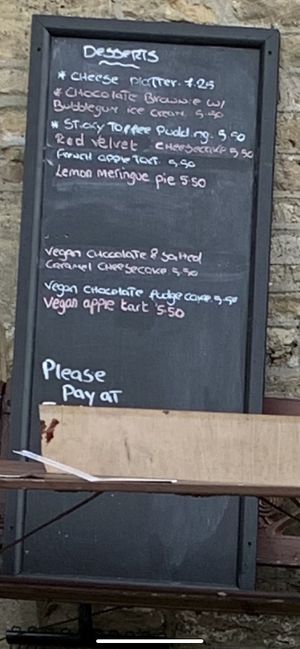 Desserts
* Cheese platter. 7.25
* Chocolate Brownie w/
Bubblegum ice cream 5.50
* Sticky Toffee Pudding. 5.50
Red Velvet Cheesecake 5.50
French apple tart. 5.50
Lemon Meringue pie 5.50
Vegan Chocolate & salted
Caramel Cheesecake 5.50
Vegan Chocolate fudge cake 5.50
Vegan apple tart 5.50
Please
Pay AT